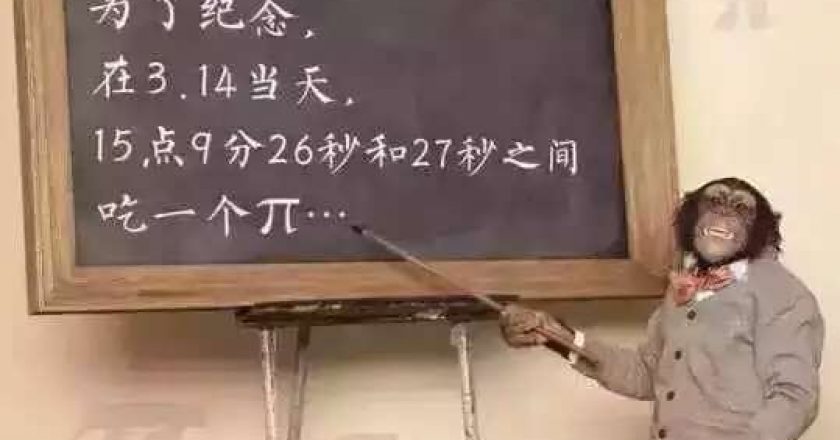 为了纪念，
在3.14当天，
15点9分26秒和27秒之间
吃一个π…